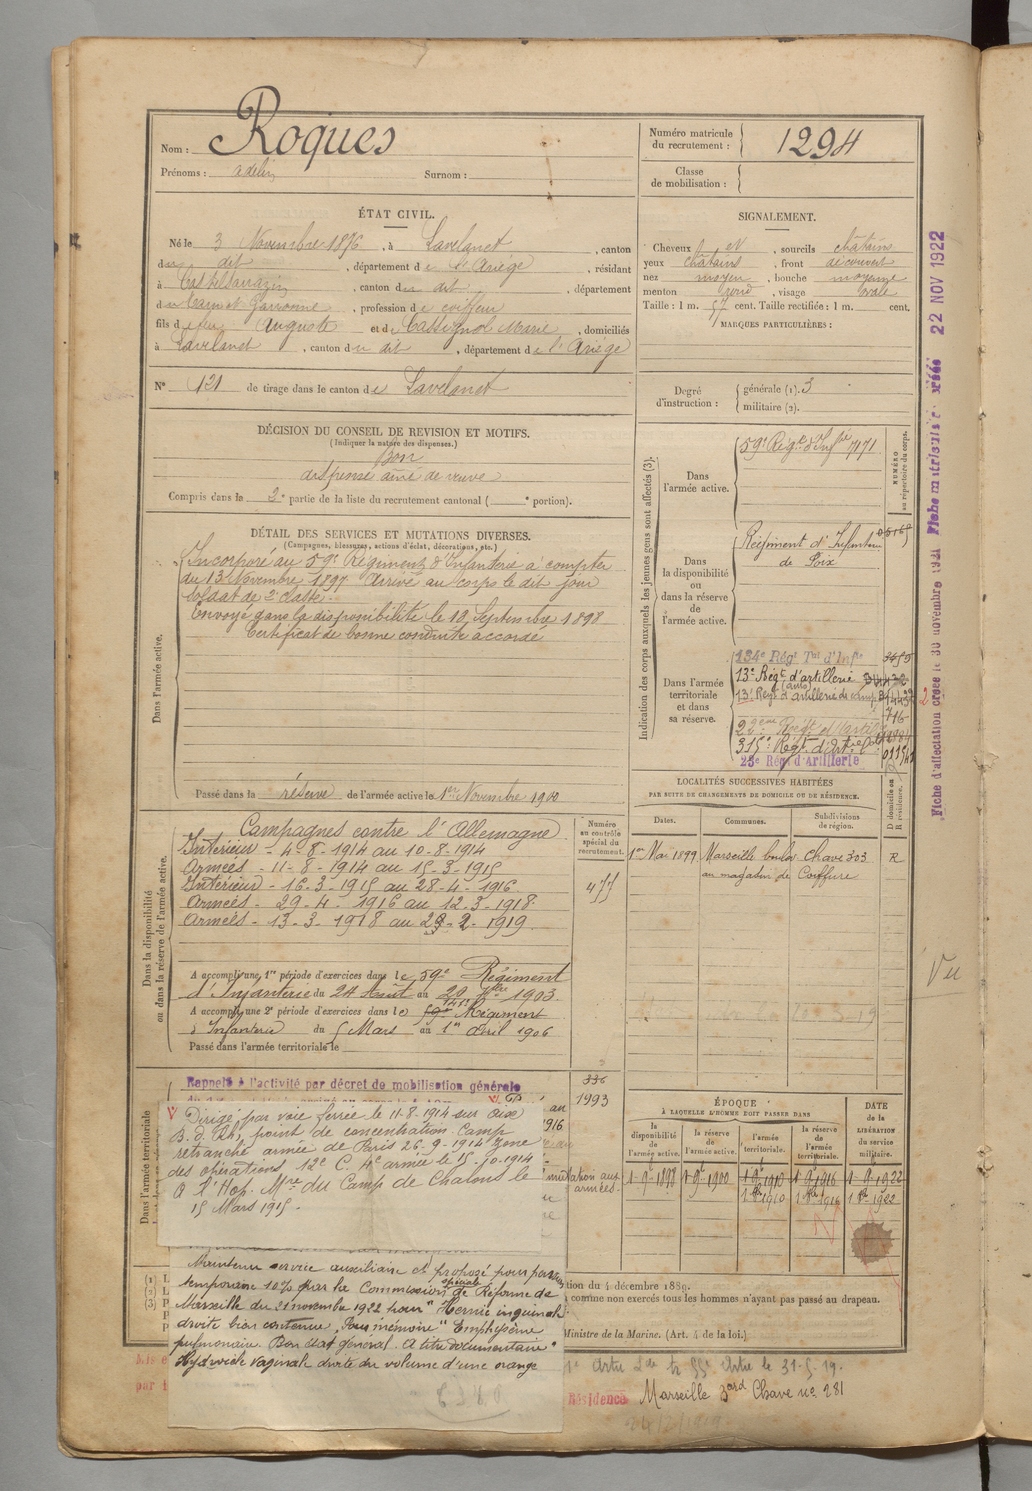 Nom : Roques
Prénoms : Adelin Surnom :
Numéro matricule du recrutement : 1294
Classe de mobilisation :
ÉTAT CIVIL.
Né le 3 Novembre 1876, à Lavelanet, canton
du dit, département de l'Ariège, résidant
à Castelsarrazin, canton du dit, département
du Tarn et Garonne, profession de coiffeur
fils de feu Auguste et de Cassignol Marie, domiciliés
à Lavelanet, canton du dit, département de l'Ariège
N° 121 de tirage dans le canton de Lavelanet
SIGNALEMENT.
Cheveux et, sourcils châtains
yeux châtains, front découvert
nez moyen, bouche moyenne
menton rond, visage ovale
Taille : 1 m. 57 cent. Taille rectifiée : 1 m. cent.
MARQUES PARTICULIÈRES :
Degré d'instruction : générale (1). 3
militaire (2).
DÉCISION DU CONSEIL DE REVISION ET MOTIFS.
(Indiquer la nature des dispenses.)
Bon
dispensé ainé de veuve
Compris dans la 2e partie de la liste du recrutement cantonal ( e portion).
DÉTAIL DES SERVICES ET MUTATIONS DIVERSES.
(Campagnes, blessures, actions d'éclat, décorations, etc.)
Dans l'armée active.
Incorporé au 59e Régiment d'Infanterie à compter
du 13 Novembre 1897. Arrivé au corps le dit jour
Soldat de 2e classe.
Envoyé dans la disponibilité le 18 Septembre 1898
Certificat de bonne conduite accordé
Passé dans la réserve de l'armée active le 1er Novembre 1900
Indication des corps auxquels les jeunes gens sont affectés (3).
NUMÉRO au répertoire du corps.
Dans l'armée active.
59e Régt d'Infrie 7171
Dans la disponibilité ou dans la réserve de l'armée active.
Régiment d'Infanterie
de Foix
Dans l'armée territoriale et dans sa réserve.
134e Régt Tal d'Infie
13e Régt d'artillerie
13e Régt d'artillerie de camp
716
315e Régt d'Artie
23e Rég. d'Artillerie
LOCALITÉS SUCCESSIVES HABITÉES
PAR SUITE DE CHANGEMENTS DE DOMICILE OU DE RÉSIDENCE.
Dates. Communes. Subdivisions de région. D domicile ou R résidence.
1er Mai 1899 Marseille boulev. Chave 303 R
au magasin de Coiffure
Dans la disponibilité ou dans la réserve de l'armée active.
Numéro au contrôle spécial du recrutement.
477
Campagnes contre l'Allemagne
Intérieur - 4-8-1914 au 10-8-1914
Armées - 11-8-1914 au 15-3-1915
Intérieur - 16-3-1915 au 28-4-1916
Armées - 29-4-1916 au 12-3-1918.
Armées - 13-3-1918 au 28-2-1919.
A accompli une 1re période d'exercices dans le 59e Régiment
d'Infanterie du 24 Août au 20 7bre 1903.
A accompli une 2e période d'exercices dans le Régiment
d'Infanterie du 5 Mars au 1er Avril 1906
Passé dans l'armée territoriale le
Dans l'armée territoriale
Rappelé à l'activité par décret de mobilisation générale
336
1993
Dirigé par voie ferrée le 11-8-1914 sur Aix
B. d. Rh., point de concentration. Camp
retranché armée de Paris 26-9-1914 Zone
des opérations 12e C. 4e armée le 15-10-1914
à l'Hop. Mre du Camp de Chalons le
15 Mars 1915.
Maintenu service auxiliaire et proposé pour pension
temporaire 10% par la Commission spéciale de Réforme de
Marseille du 21 novembre 1922 pour "Hernie inguinale
droite bien contenue. Pour mémoire "Emphysème
pulmonaire. Bon état général. A titre documentaire "
Hydrocèle vaginale droite du volume d'une orange
ÉPOQUE
À LAQUELLE L'HOMME DOIT PASSER DANS
la disponibilité de l'armée active. la réserve de l'armée active. l'armée territoriale. la réserve de l'armée territoriale.
DATE de la LIBÉRATION du service militaire.
1-9-1898 1-9-1900 1-9-1910 1-9-1916 1-9-1922
1910 1916 1922
tion du 4 décembre 1889.
comme non exercés tous les hommes n'ayant pas passé au drapeau.
Ministre de la Marine. (Art. 4 de la loi.)
le 31-5-19.
Résidence Marseille Bard Chave no 281
Vu
22 NOV 1922
Fiche d'affectation créée le 30 novembre 1931
Fiche matricule créée